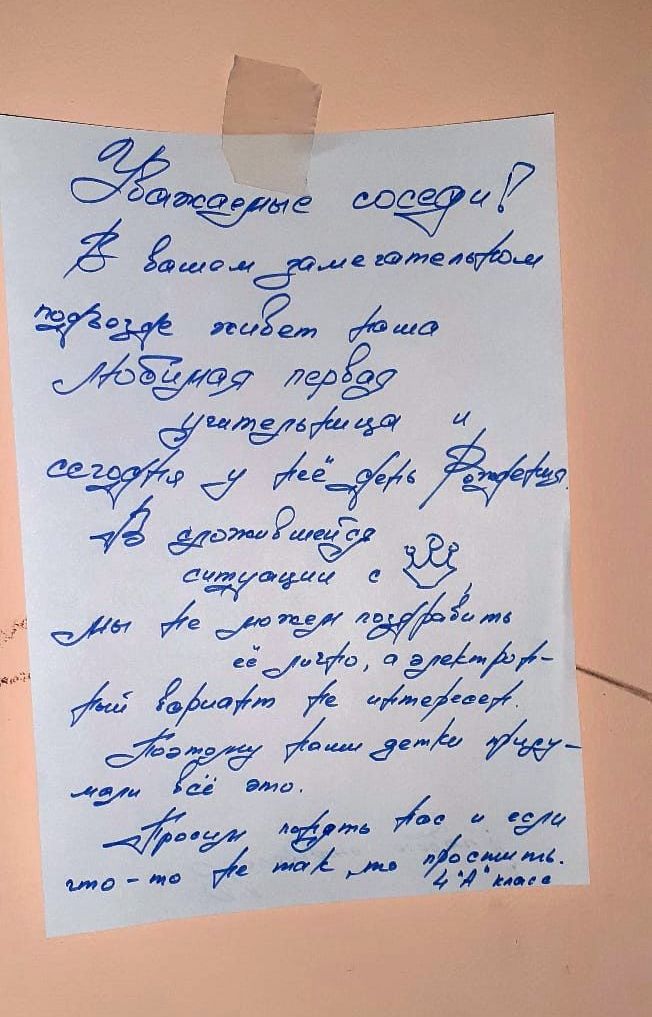 Уважаемые соседи!
В вашем замечательном
подъезде живет наша
любимая первая
учительница и
сегодня у неё день Рождения.
В сложившейся
ситуации с
мы не можем поздравить
её лично, а электрон-
ный вариант не интересен.
Поэтому наши детки приду-
мали всё это.
Просим понять нас и если
что-то не так, то простить.
4 "А" класс